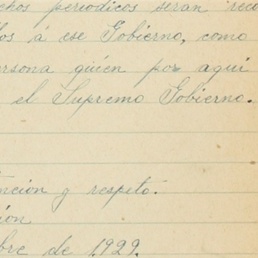 chos periodicos serán reco
los á ese Gobierno, como
ersona quien por aquí
el Supremo Gobierno.
nción y respeto.
ión
bre de 1929.